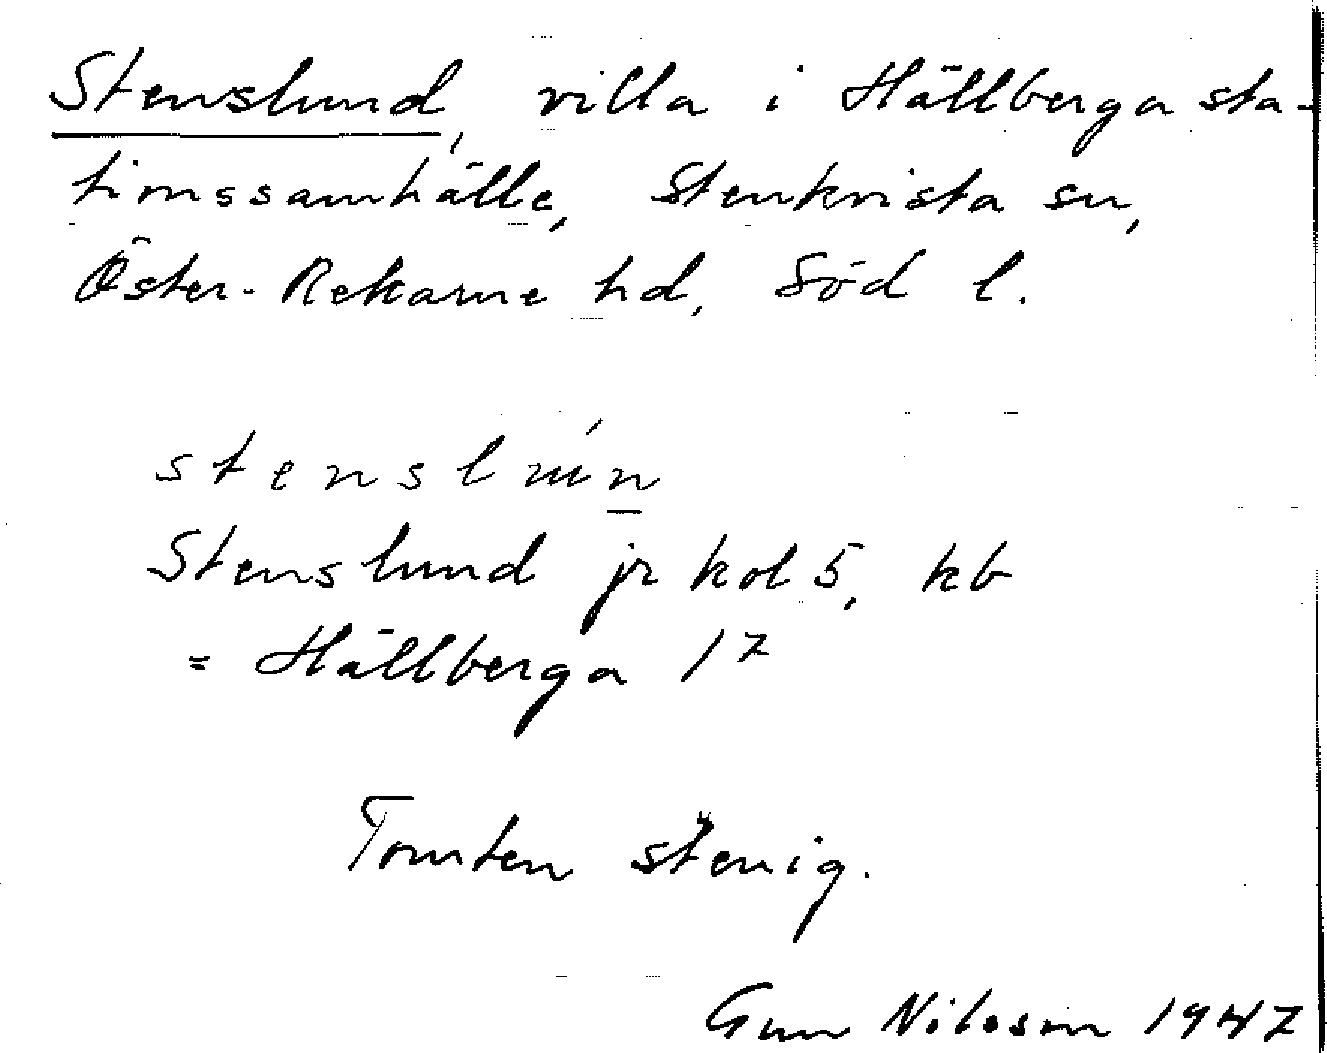 Stenslund, villa i Hällberga sta-
tionssamhälle, Stenkvista sn,
Öster-Rekarne hd, Söd l.
stenslún
Stenslund jr kol 5, kb
= Hällberga 1⁷
Tomten stenig.
Gun Nilsson 1947